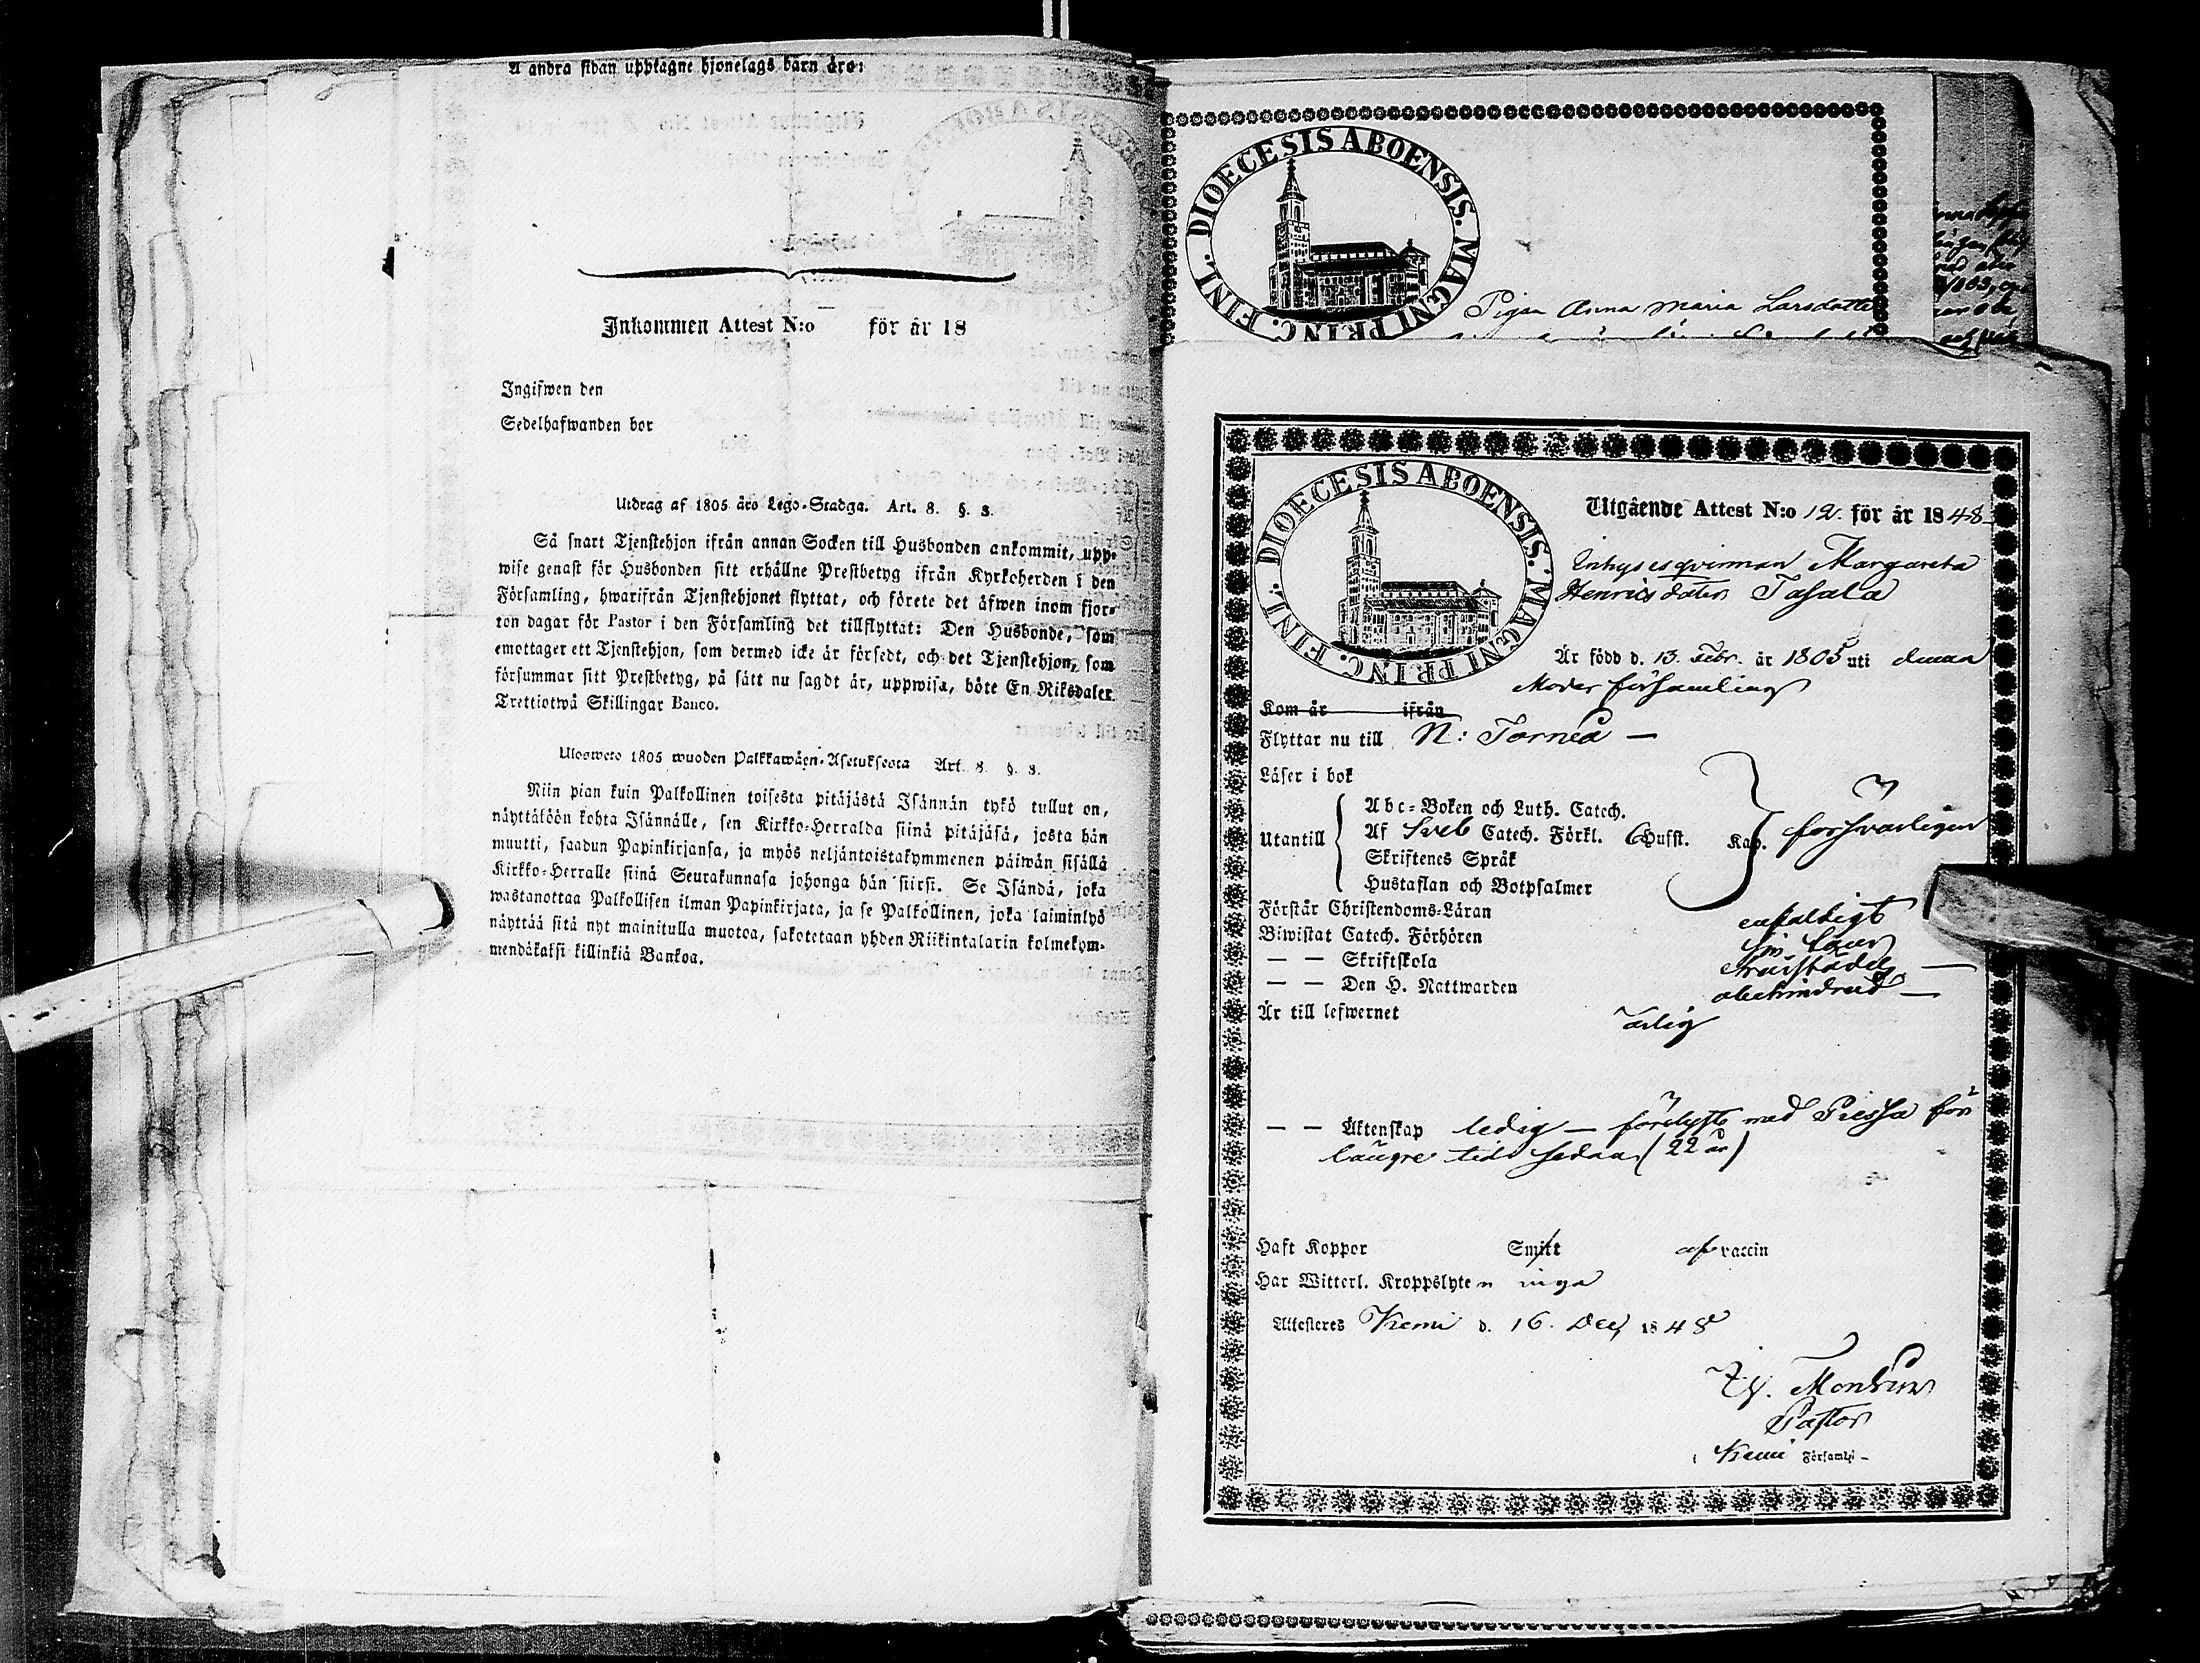 Å andra sidan upptagne hjonelags barn äro:
Inkommen Attest N:o för år 18
Ingifwen den
Sedelhafwanden bor
Utdrag af 1805 års Lego-Stadga. Art. 8. §. 8.
Så snart Tjenstehjon ifrån annan Socken till Husbonden ankommit, upp-
wise genast för Husbonden sitt erhållne Prestbetyg ifrån Kyrkoherden i den
Församling, hwarifrån Tjenstehjonet flyttat, och förete det äfwen inom fjor-
ton dagar för Pastor i den Församling det tillflyttat: Den Husbonde, som
emottager ett Tjenstehjon, som dermed icke är försedt, och det Tjenstehjon, som
försummar sitt Prestbetyg, på sätt nu sagdt är, uppwisa, böte En Riksdaler
Trettiotwå Skillingar Banco.
Ulosweto 1805 wuoden Palkkawäen-Asetuksesta Art. 8. §. 8.
Niin pian kuin Palkollinen toisesta pitäjästä Isännän tykö tullut on,
näyttäköön kohta Isännälle, sen Kirkko-Herralda siinä pitäjäsä, josta hän
muutti, saadun Papinkirjansa, ja myös neljäntoistakymmenen päiwän sisällä
Kirkko-Herralle siinä Seurakunnasa johonga hän siirsi. Se Isändä, joka
wastanottaa Palkollisen ilman Papinkirjata, ja se Palkollinen, joka laiminlyö
näyttää sitä nyt mainitulla muotoa, sakotetaan yhden Riikintalarin kolmekym-
mendäkaksi killinkiä Bankoa.
DIOECESIS ABOENSIS. MAGNI PRINC. FINL.
Pigan Anna Maria Larsdotter
DIOECESIS ABOENSIS. MAGNI PRINC. FINL.
Utgående Attest N:o 12. för år 1848
Inhysesqvinnan Margareta
Henricsdoter Tasala
Är född d. 13. Febr. år 1805 uti denna
Moder församling
Kom år ifrån
Flyttar nu till N: Torneå —
Läser i bok
Utantill
Abc-Boken och Luth. Catech.
Af Sveb Catech. Förkl. Husfl. Kap. försvarligen
Skriftenes Språk
Hustaflan och Botpsalmer
Förstår Christendoms-Läran enfaldigt
Biwistat Catech. Förhören
— — Skriftskola
— — Den H. Nattwarden obehindrad —
Är till lefwernet ärlig
— — Äktenskap ledig — förelyst med Piessa för
längre tid sedan (22 år)
Haft Koppor Smitt af vaccin
Har Witterl. Kroppslyten inga
Attesteres Kemi d. 16. Dec, 1848
Pastor
i Kemi Församl: